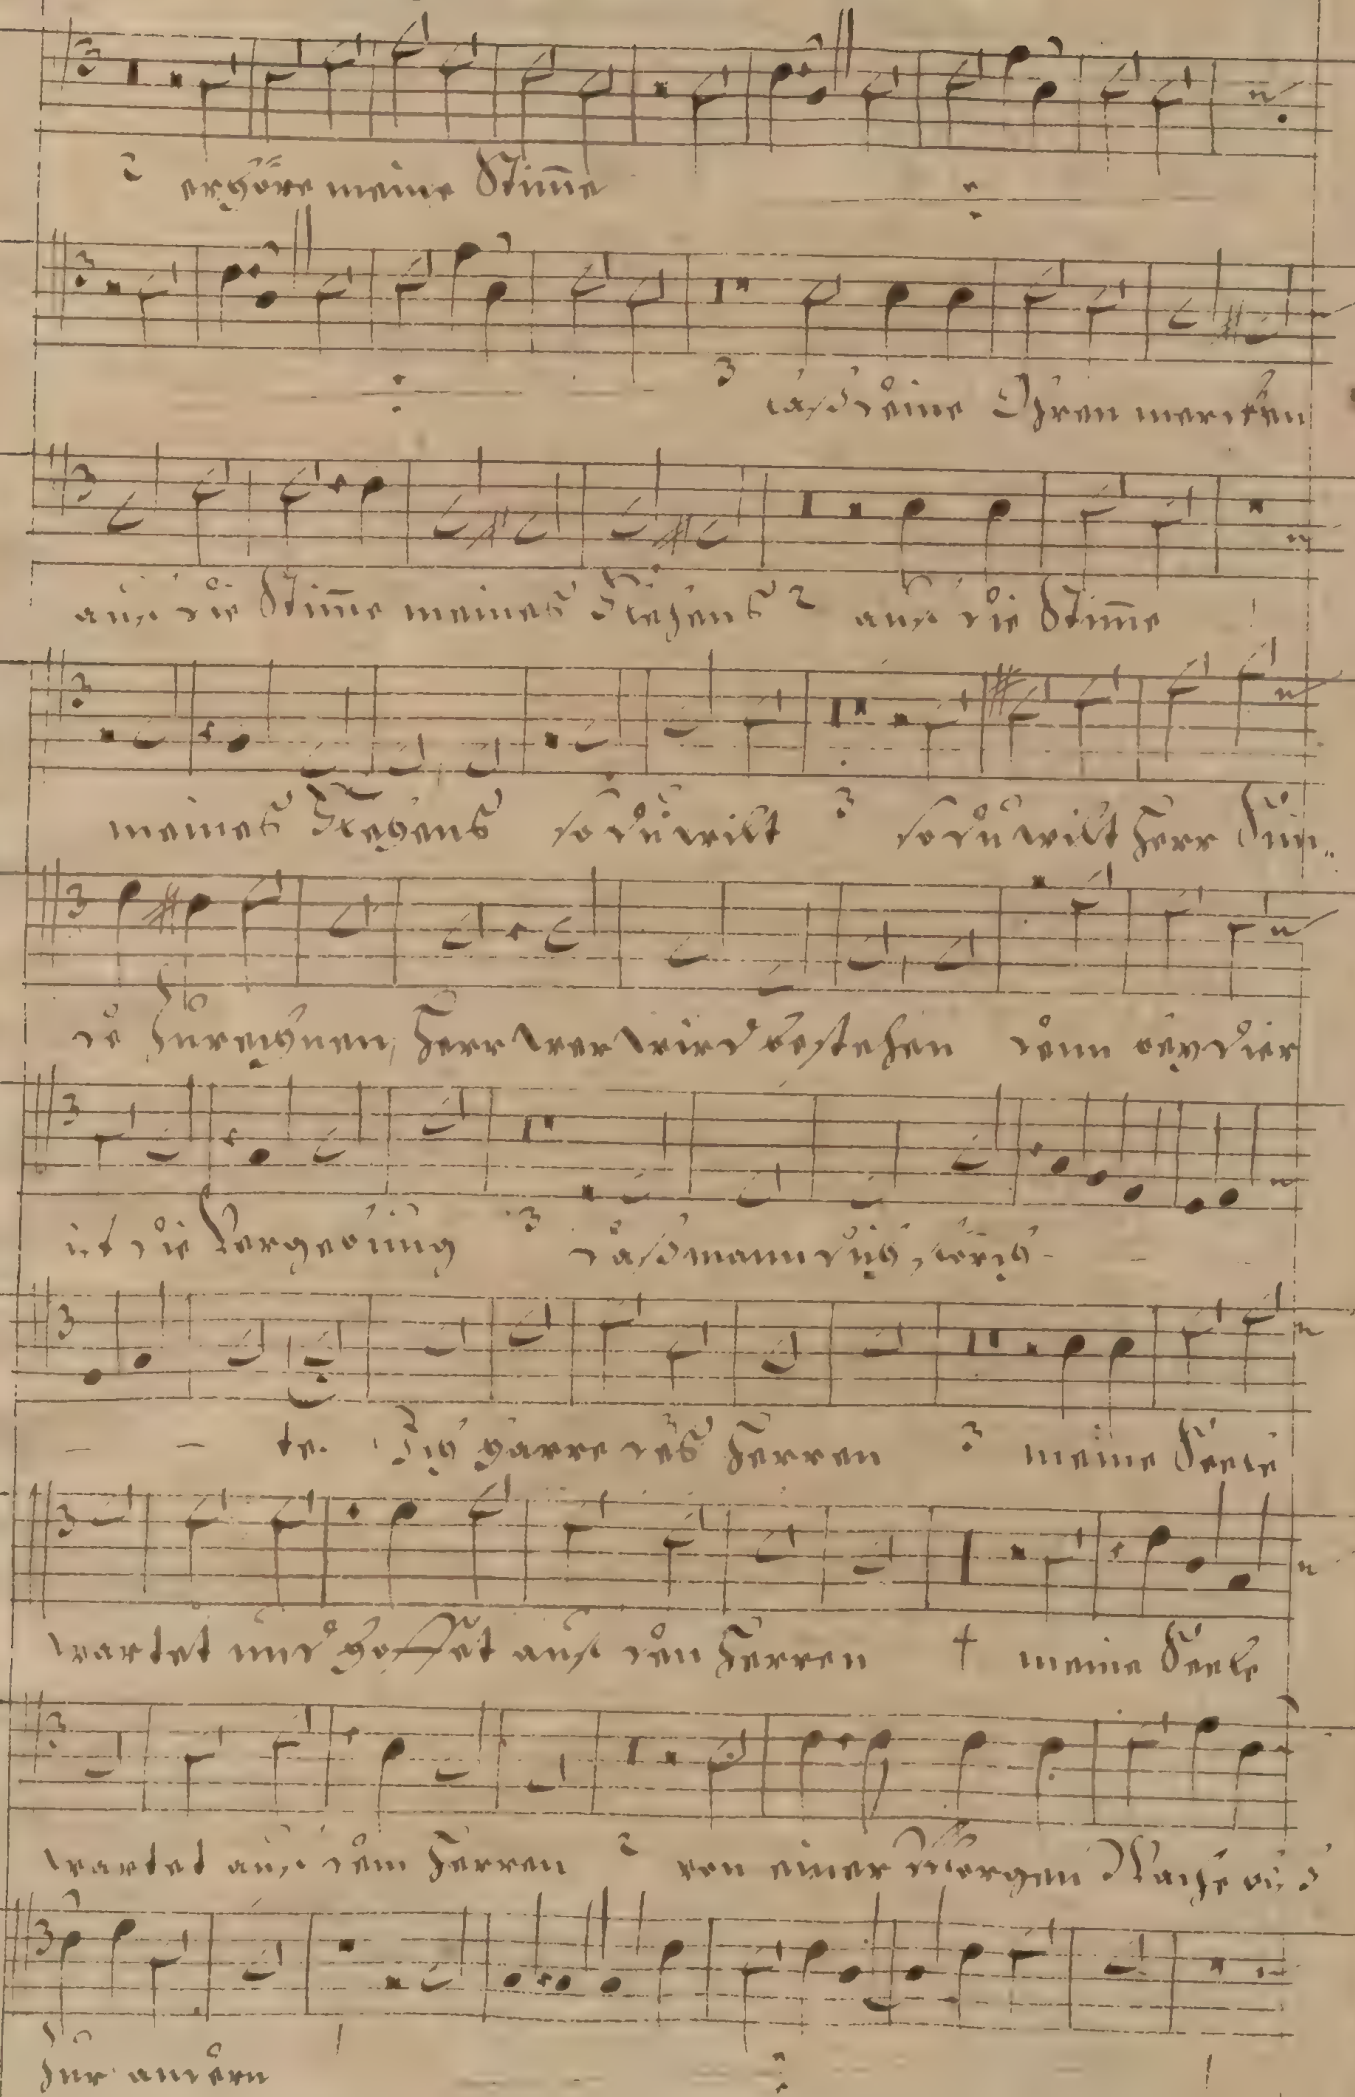 2 erhöre meine Stim̅e
3 laß deine Ohren mercken
auf die Stim̅e meines Flehens 2 auf die Stim̅e
meines Flehens so du wilt 3 so du wilt Herr Sün„
de Zurechnen, Herr wer wird bestehen denn bey dier
ist die Vergebung 3 daß mann dich förch-
- - te. Ich harre des Herren 3 meine Seele
wartet und hoffet auf den Herren † meine Seele
wartet auf dem Herren 2 von einer Morgen Wache bis
Zur andern